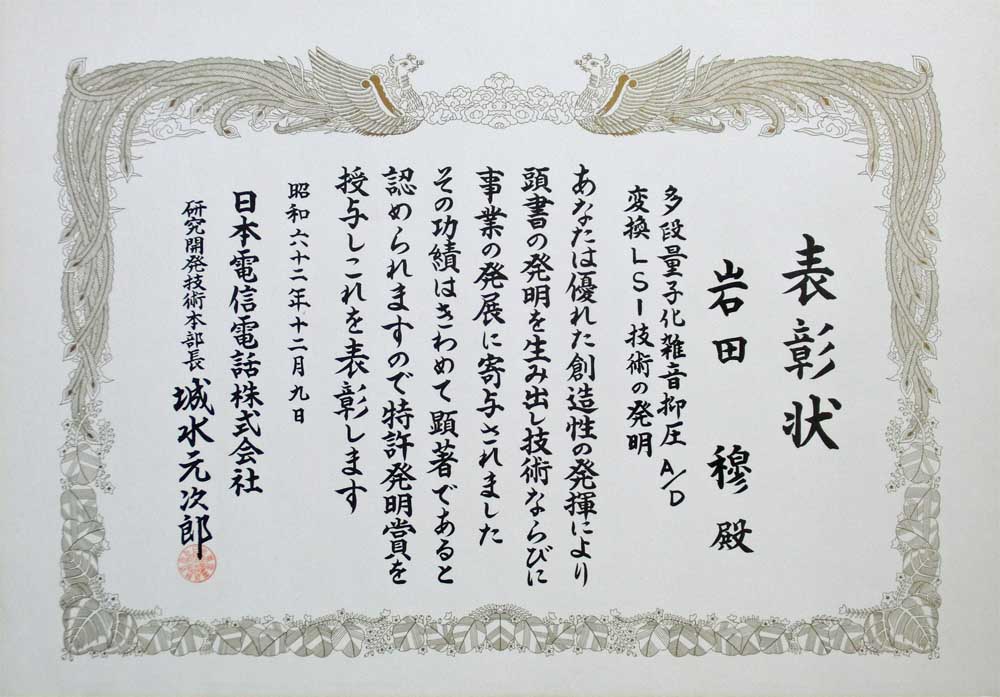 表彰状
岩田 穆 殿
多段量子化雑音抑圧 A/D
変換LSI技術の発明
あなたは優れた創造性の発揮により
頭書の発明を生み出し技術ならびに
事業の発展に寄与されました
その功績はきわめて顕著であると
認められますので特許発明賞を
授与しこれを表彰します
昭和六十二年十二月九日
日本電信電話株式会社
研究開発技術本部長 城水元次郎